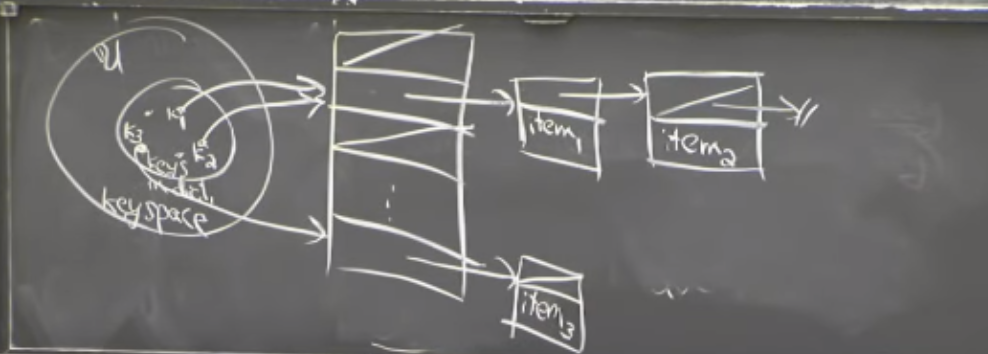 U
k₁
k₃
k₂
keys
in dict.
key space
⋮
item₁
item₂
item₃